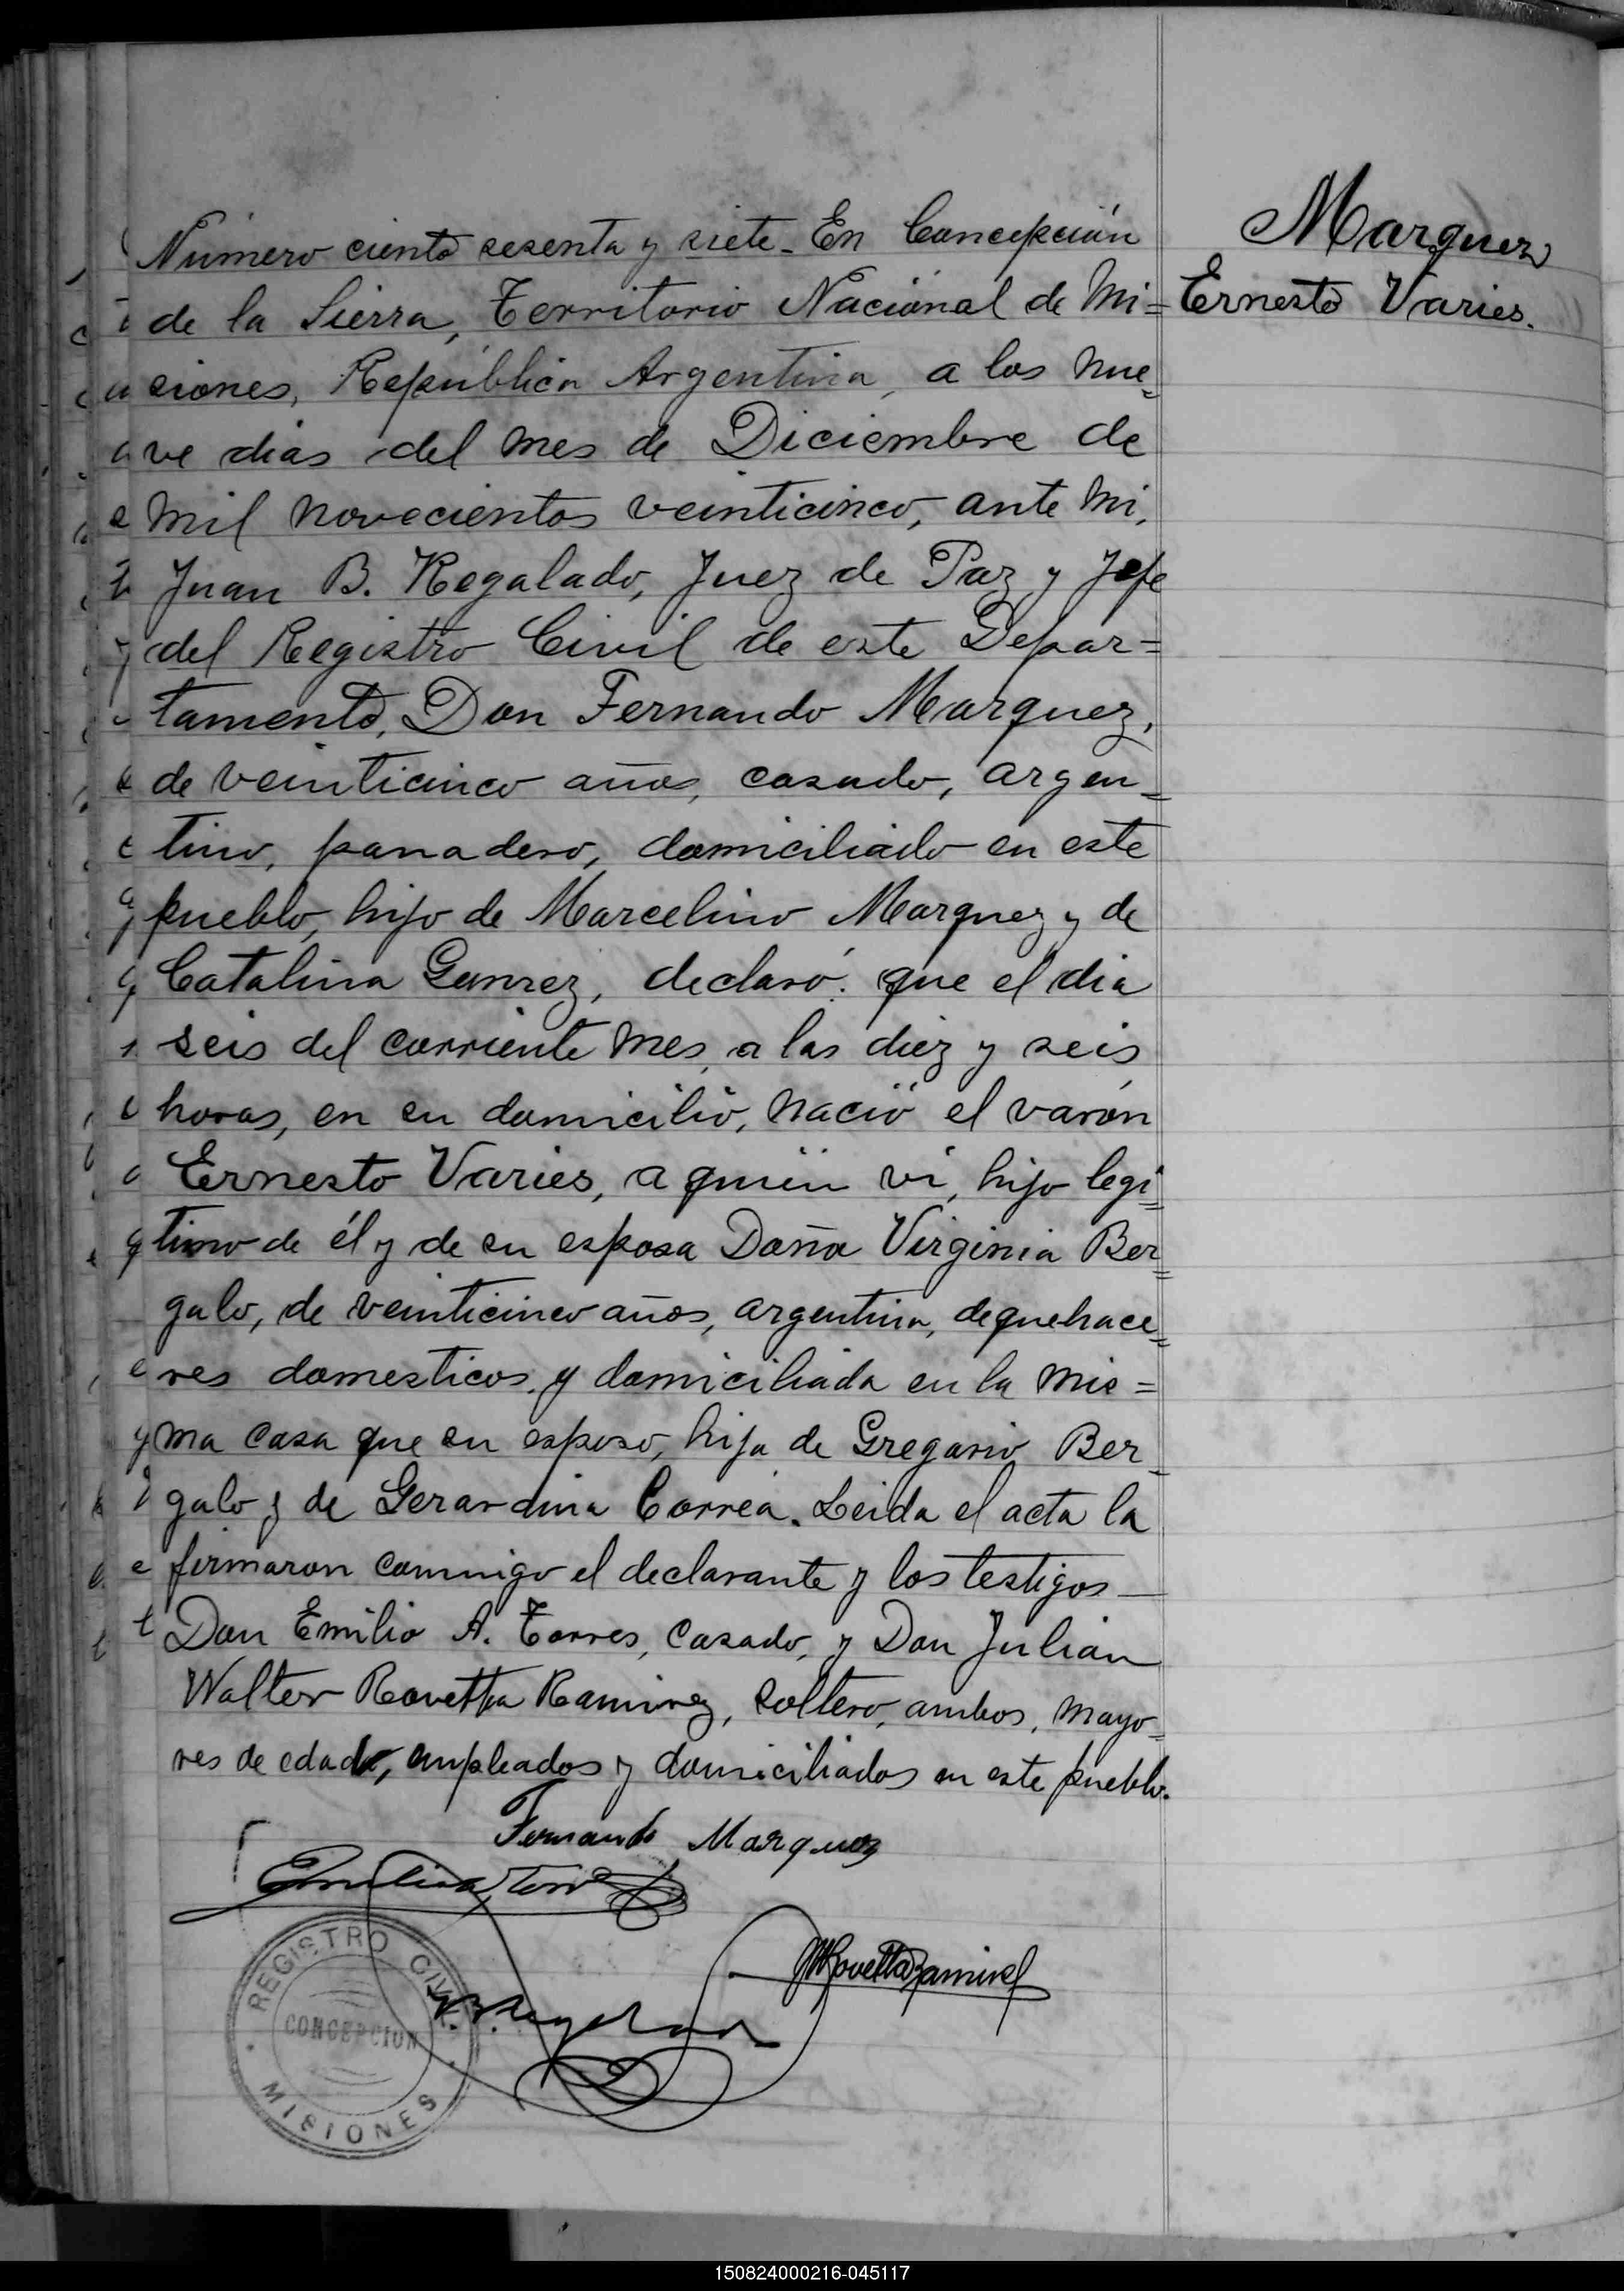 Marquez
Ernesto Varies.
Número ciento sesenta y siete. En Concepción
de la Sierra, Territorio Nacional de Mi=
siones, República Argentina, a los nue=
ve dias del mes de Diciembre de
mil novecientos veinticinco, ante mi,
Juan B. Regalado, Juez de Paz y Jefe
del Registro Civil de este Depar=
tamento, Don Fernando Marquez,
de veinticinco años, casado, argen=
tino, panadero, domiciliado en este
pueblo, hijo de Marcelino Marquez y de
Catalina, declaró: que el dia
seis del corriente mes, a las diez y seis
horas, en su domicilio, nació el varón
Ernesto Varies, a quien vi, hijo legi=
timo de él y de su esposa Doña Virginia Ber=
galo, de veinticinco años, argentina, de quehace=
res domesticos y domiciliada en la mis=
ma casa que su esposo, hija de Gregorio Ber=
galo y de Gerardina Correa. Leida el acta la
firmaron conmigo el declarante y los testigos
Don Emilio A. Torres, casado, y Don Julian
Walter Rovetta Ramirez, soltero, ambos, mayo=
res de edad, empleados y domiciliados en este pueblo.
Fernando Marquez
REGISTRO CIVIL
CONCEPCION
MISIONES
150824000216-045117